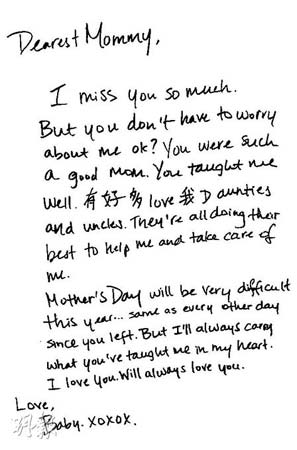 Dearest Mommy,
I miss you so much.
But you don't have to worry
about me ok? You were such
a good mom. You taught me
well. 有好多 love 我 D aunties
and uncles. They're all doing their
best to help me and take care of
me.
Mother's Day will be very difficult
this year... same as every other day
since you left. But I'll always carry
what you've taught me in my heart.
I love you. Will always love you.
Love,
Baby. xoxox.
明報